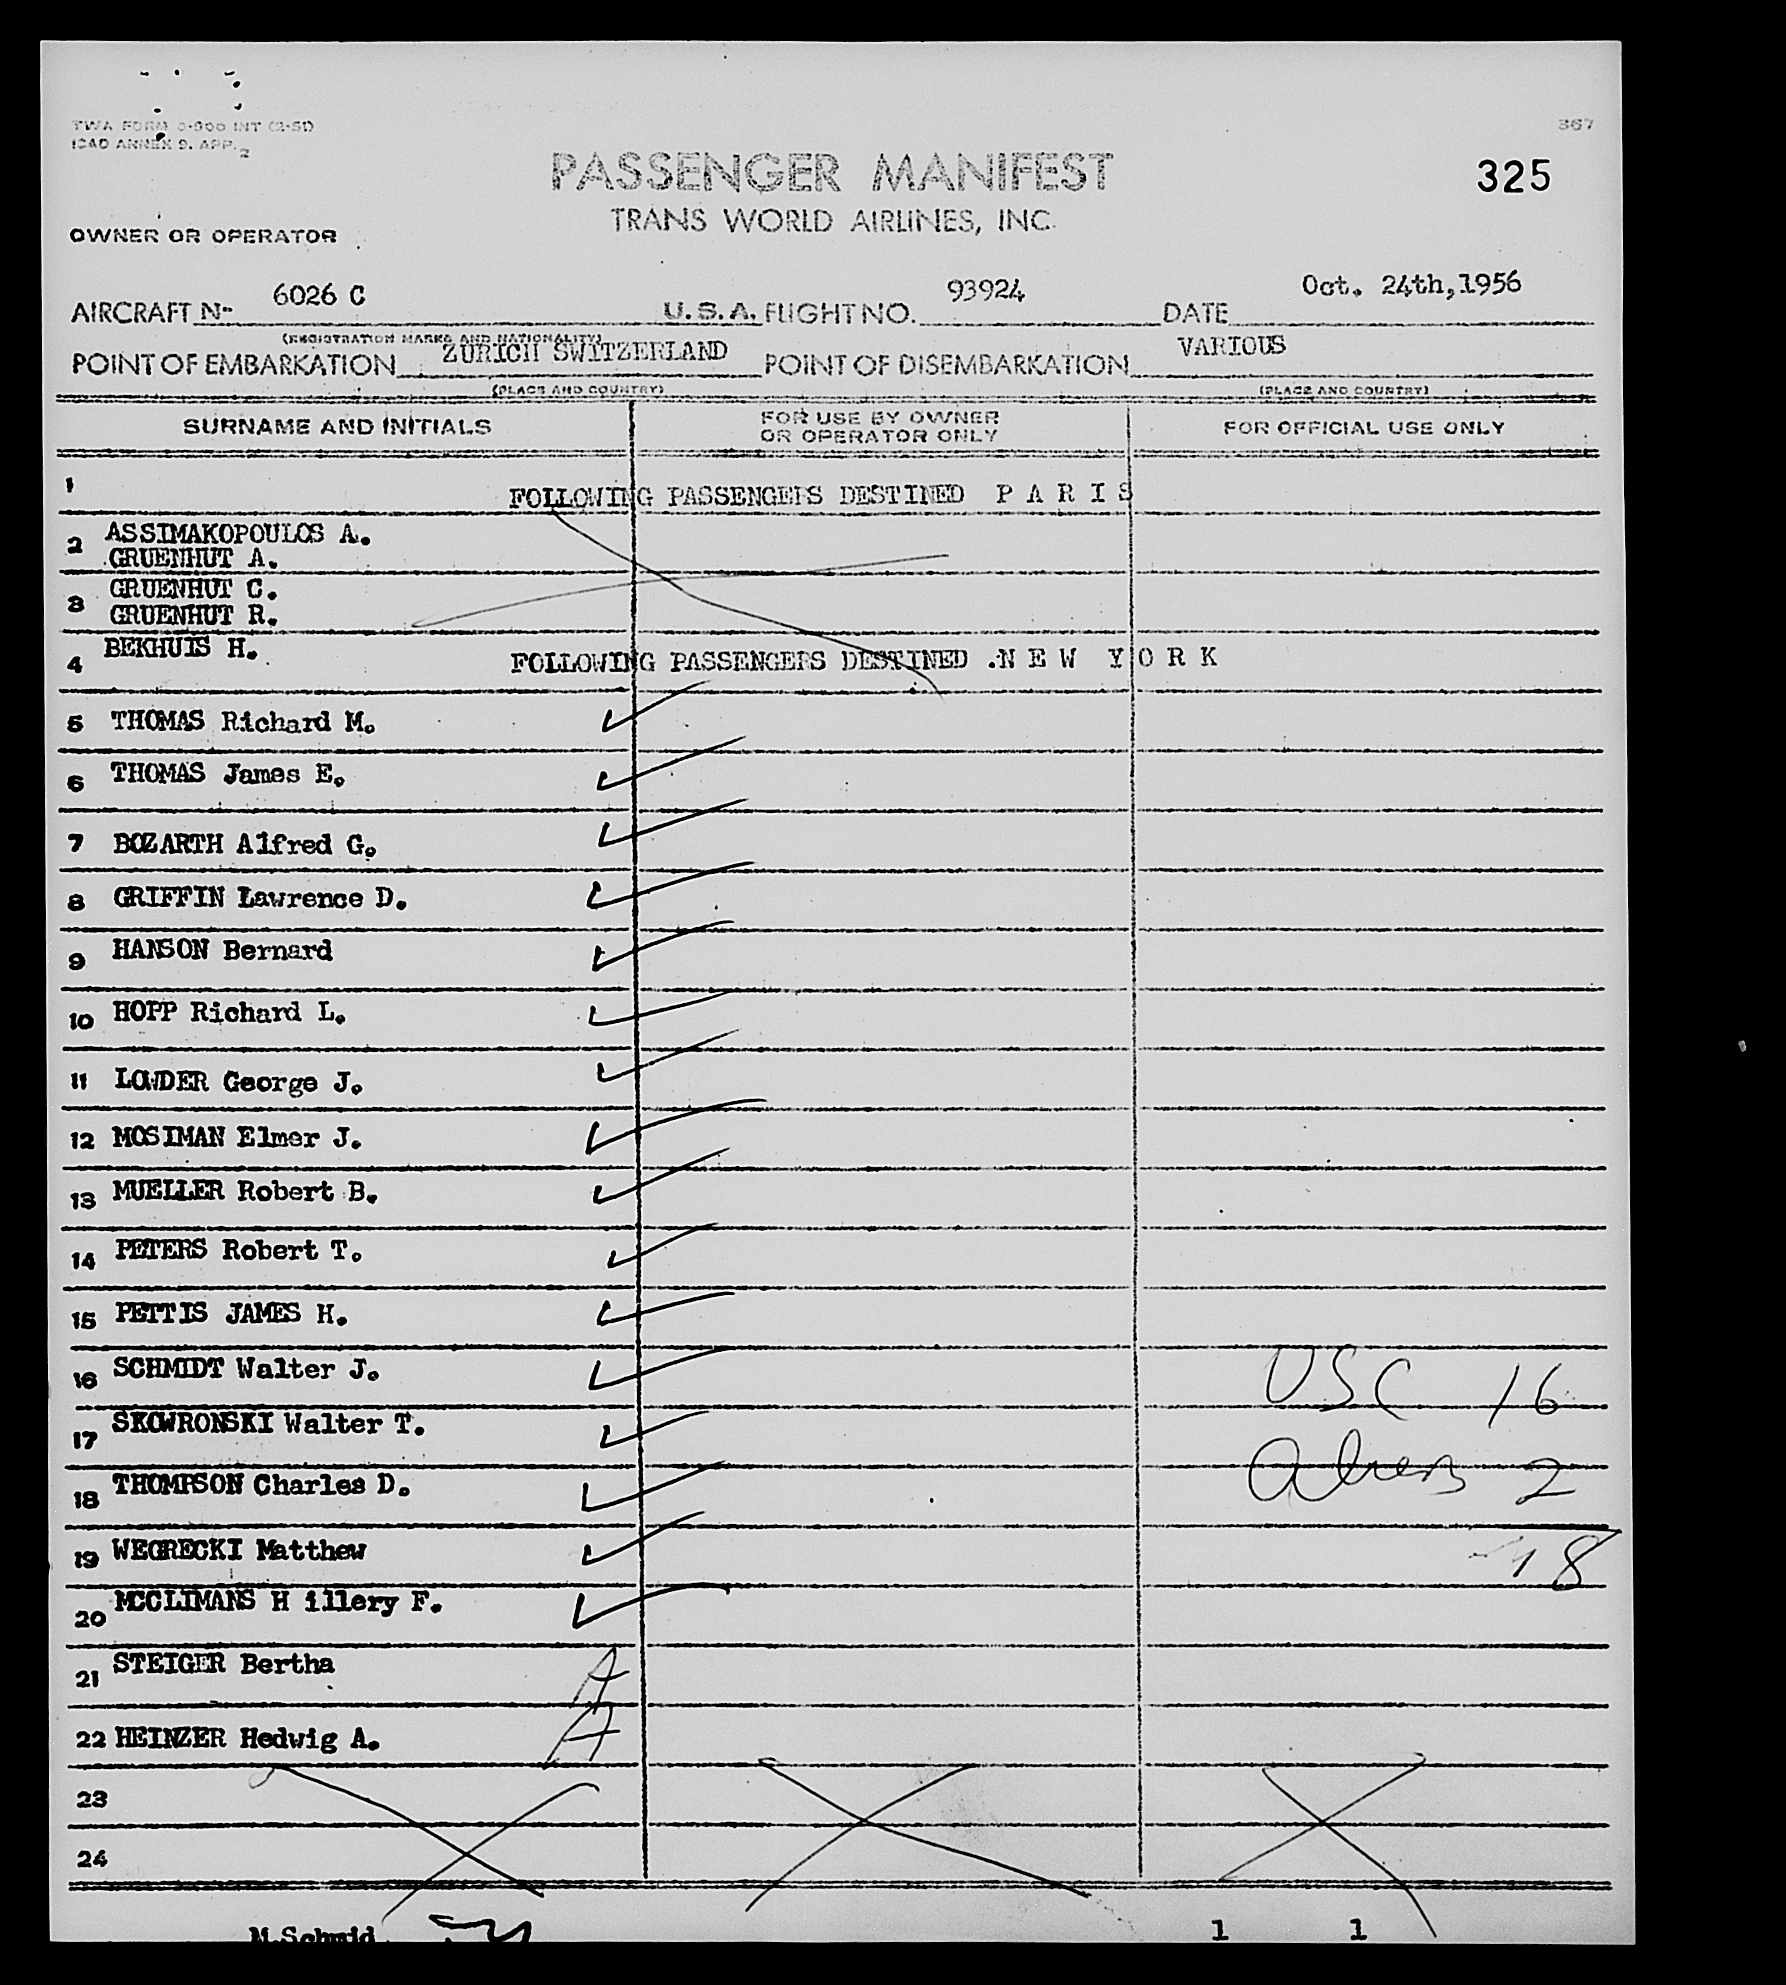 TWA FORM 0-900 INT (2-51)
ICAO ANNEX 9. APP. 2
367
PASSENGER MANIFEST
325
TRANS WORLD AIRLINES, INC.
OWNER OR OPERATOR
AIRCRAFT No. 6026 C U.S.A. FLIGHT NO. 93924 DATE Oct. 24th,1956
(REGISTRATION MARKS AND NATIONALITY)
POINT OF EMBARKATION ZURICH SWITZERLAND POINT OF DISEMBARKATION VARIOUS
(PLACE AND COUNTRY) (PLACE AND COUNTRY)
SURNAME AND INITIALS FOR USE BY OWNER OR OPERATOR ONLY FOR OFFICIAL USE ONLY
1 FOLLOWING PASSENGERS DESTINED P A R I S
2 ASSIMAKOPOULOS A.
GRUENHUT A.
3 GRUENHUT C.
GRUENHUT R.
4 BEKHUIS H.
FOLLOWING PASSENGERS DESTINED .N E W Y O R K
5 THOMAS Richard M.
6 THOMAS James E.
7 BOZARTH Alfred G.
8 GRIFFIN Lawrence D.
9 HANSON Bernard
10 HOPP Richard L.
11 LOWDER George J.
12 MOSIMAN Elmer J.
13 MUELLER Robert B.
14 PETERS Robert T.
15 PETTIS JAMES H.
16 SCHMIDT Walter J. USC 16
17 SKOWRONSKI Walter T.
18 THOMPSON Charles D. Aliens 2
19 WEGRECKI Matthew 18
20 MCCLIMANS H illery F.
21 STEIGER Bertha A
22 HEINZER Hedwig A. A
23
24
M.Schmid 1 1